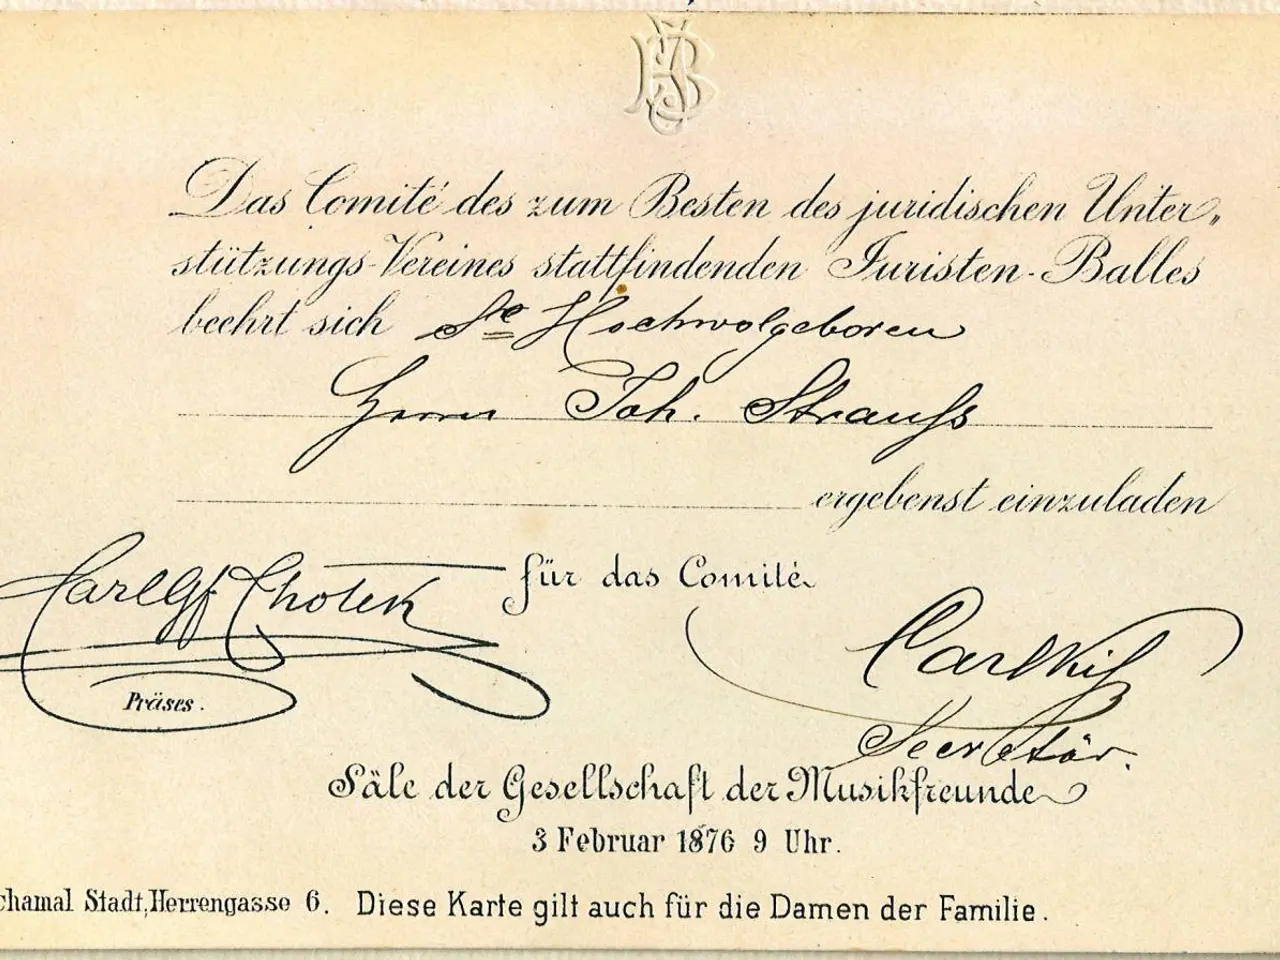 Das Comité des zum Besten des juridischen Unter„
stützungs-Vereines stattfindenden Juristen-Balles
beehrt sich Se Hochwolgeboren
Herrn Joh. Strauß
ergebenst einzuladen
für das Comité
Carl Gf Chotek
Präses.
Carl
Secretär.
Säle der Gesellschaft der Musikfreunde
3 Februar 1876 9 Uhr.
Stadt, Herrengasse 6. Diese Karte gilt auch für die Damen der Familie.